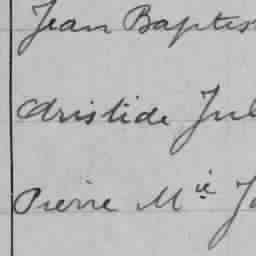 Jean Baptis
Aristide Jul
Pierre Mie J